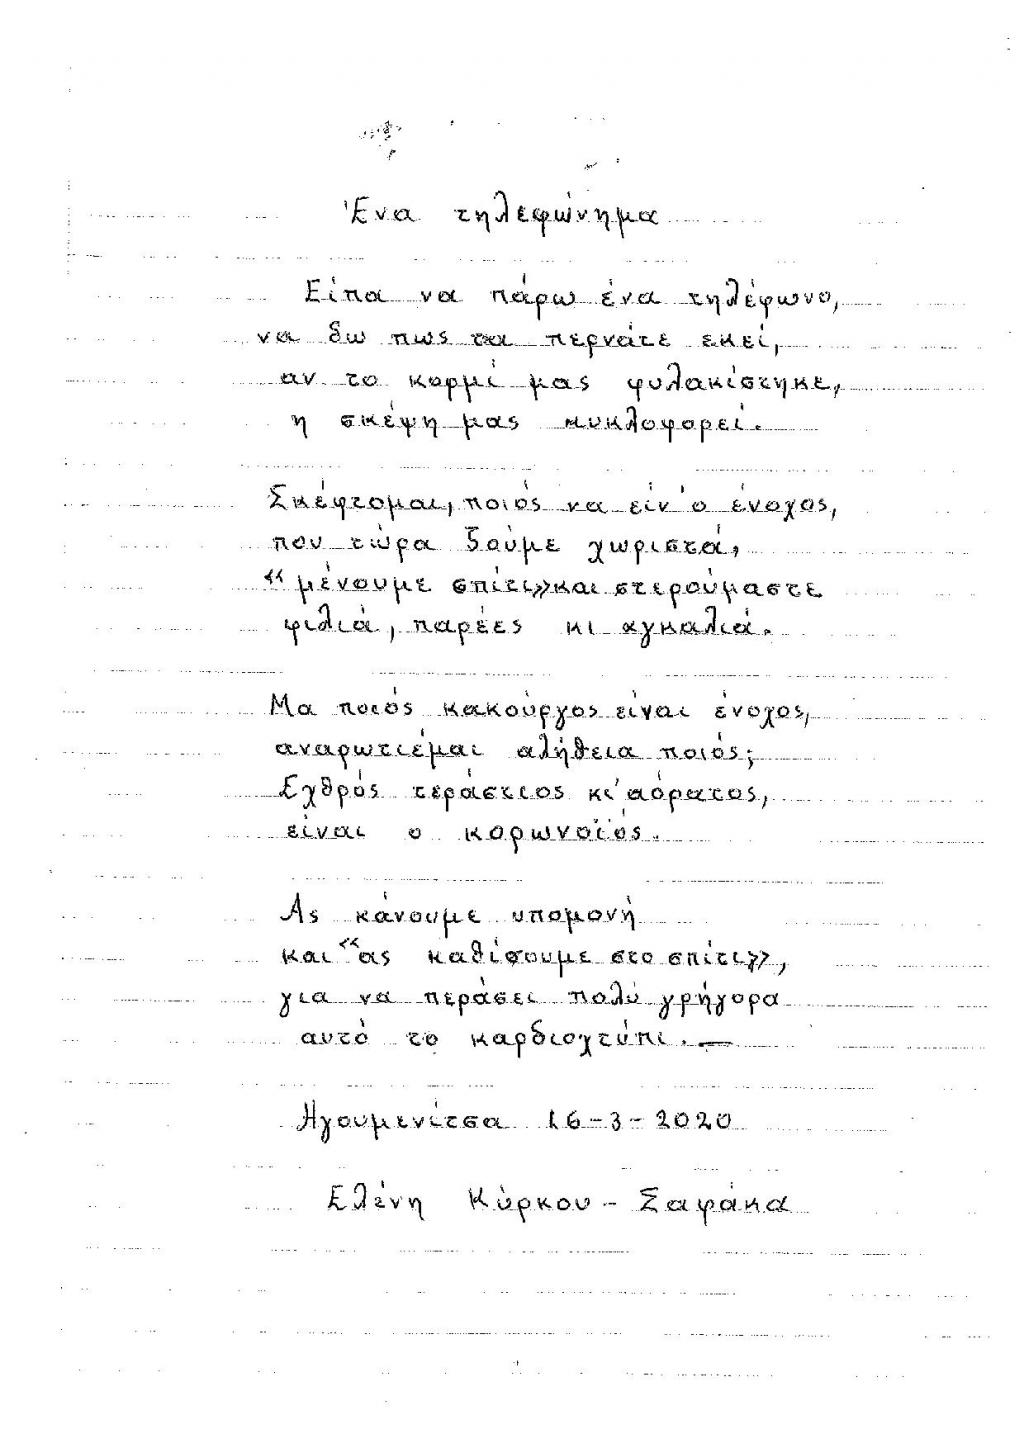 Ένα τηλεφώνημα
Είπα να πάρω ένα τηλέφωνο,
να δω πως τα περνάτε εκεί,
αν το κορμί μας φυλακίστηκε,
η σκέψη μας κυκλοφορεί.
Σκέφτομαι, ποιός να είν' ο ένοχος,
που τώρα ζούμε χωριστά,
«μένουμε σπίτι» και στερούμαστε
φιλιά, παρέες κι αγκαλιά.
Μα ποιός κακούργος είναι ένοχος,
αναρωτιέμαι αλήθεια ποιός;
Εχθρός τεράστιος κι' αόρατος,
είναι ο κορωνοϊός.
Ας κάνουμε υπομονή
και «ας καθίσουμε στο σπίτι»,
για να περάσει πολύ γρήγορα
αυτό το καρδιοχτύπι.—
Ηγουμενίτσα 16-3-2020
Ελένη Κύρκου - Σαφάκα